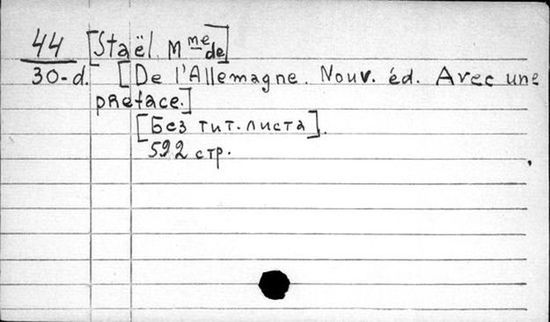 44 [Staël. Mme de]
30-d. [De l'Allemagne. Nouv. éd. Avec une
preface.]
[Без тит. листа].
592 стр.